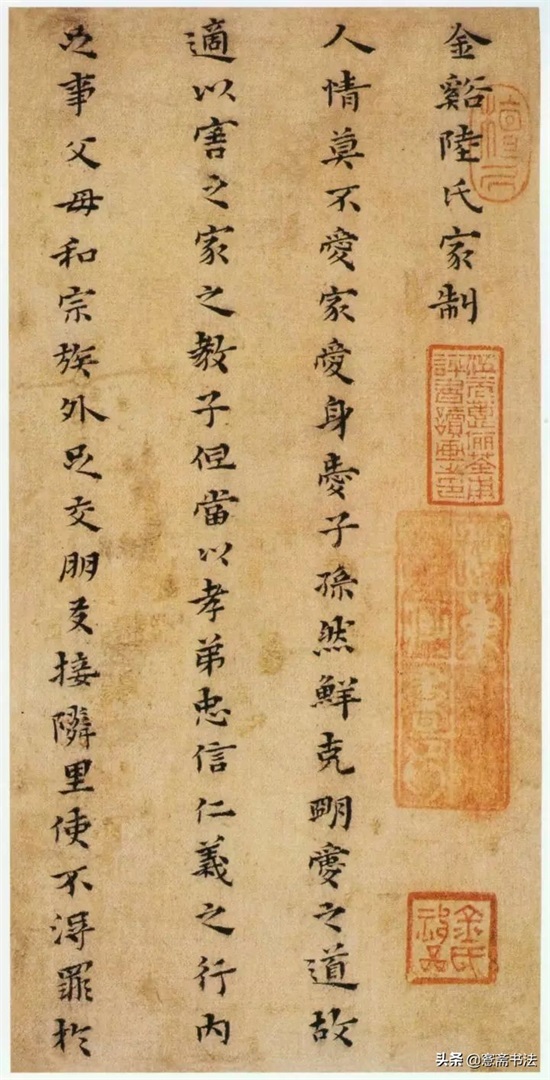 金谿陸氏家制
人情莫不愛家愛身愛子孫然鮮克明愛之道故
適以害之家之教子但當以孝弟忠信仁義之行內
足事父母和宗族外足交朋友接隣里使不得罪於
头条 @愙斋书法